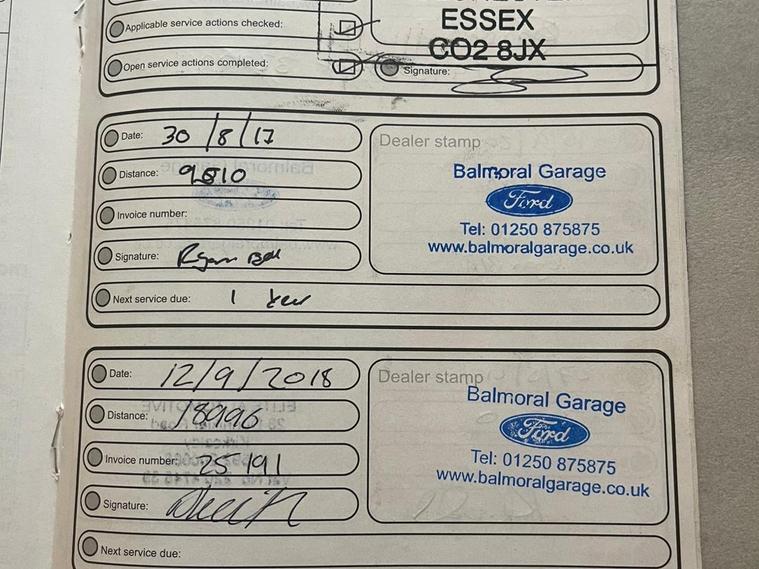 Applicable service actions checked:
ESSEX
CO2 8JX
Open service actions completed:
Signature:
Date: 30/8/17
Dealer stamp
Distance: 9810
Balmoral Garage
Ford
Invoice number:
Tel: 01250 875875
www.balmoralgarage.co.uk
Signature:
Next service due: 1 Year
Date: 12/9/2018
Dealer stamp
Balmoral Garage
Distance: 18996
Ford
Invoice number: 25191
Tel: 01250 875875
www.balmoralgarage.co.uk
Signature:
Next service due: